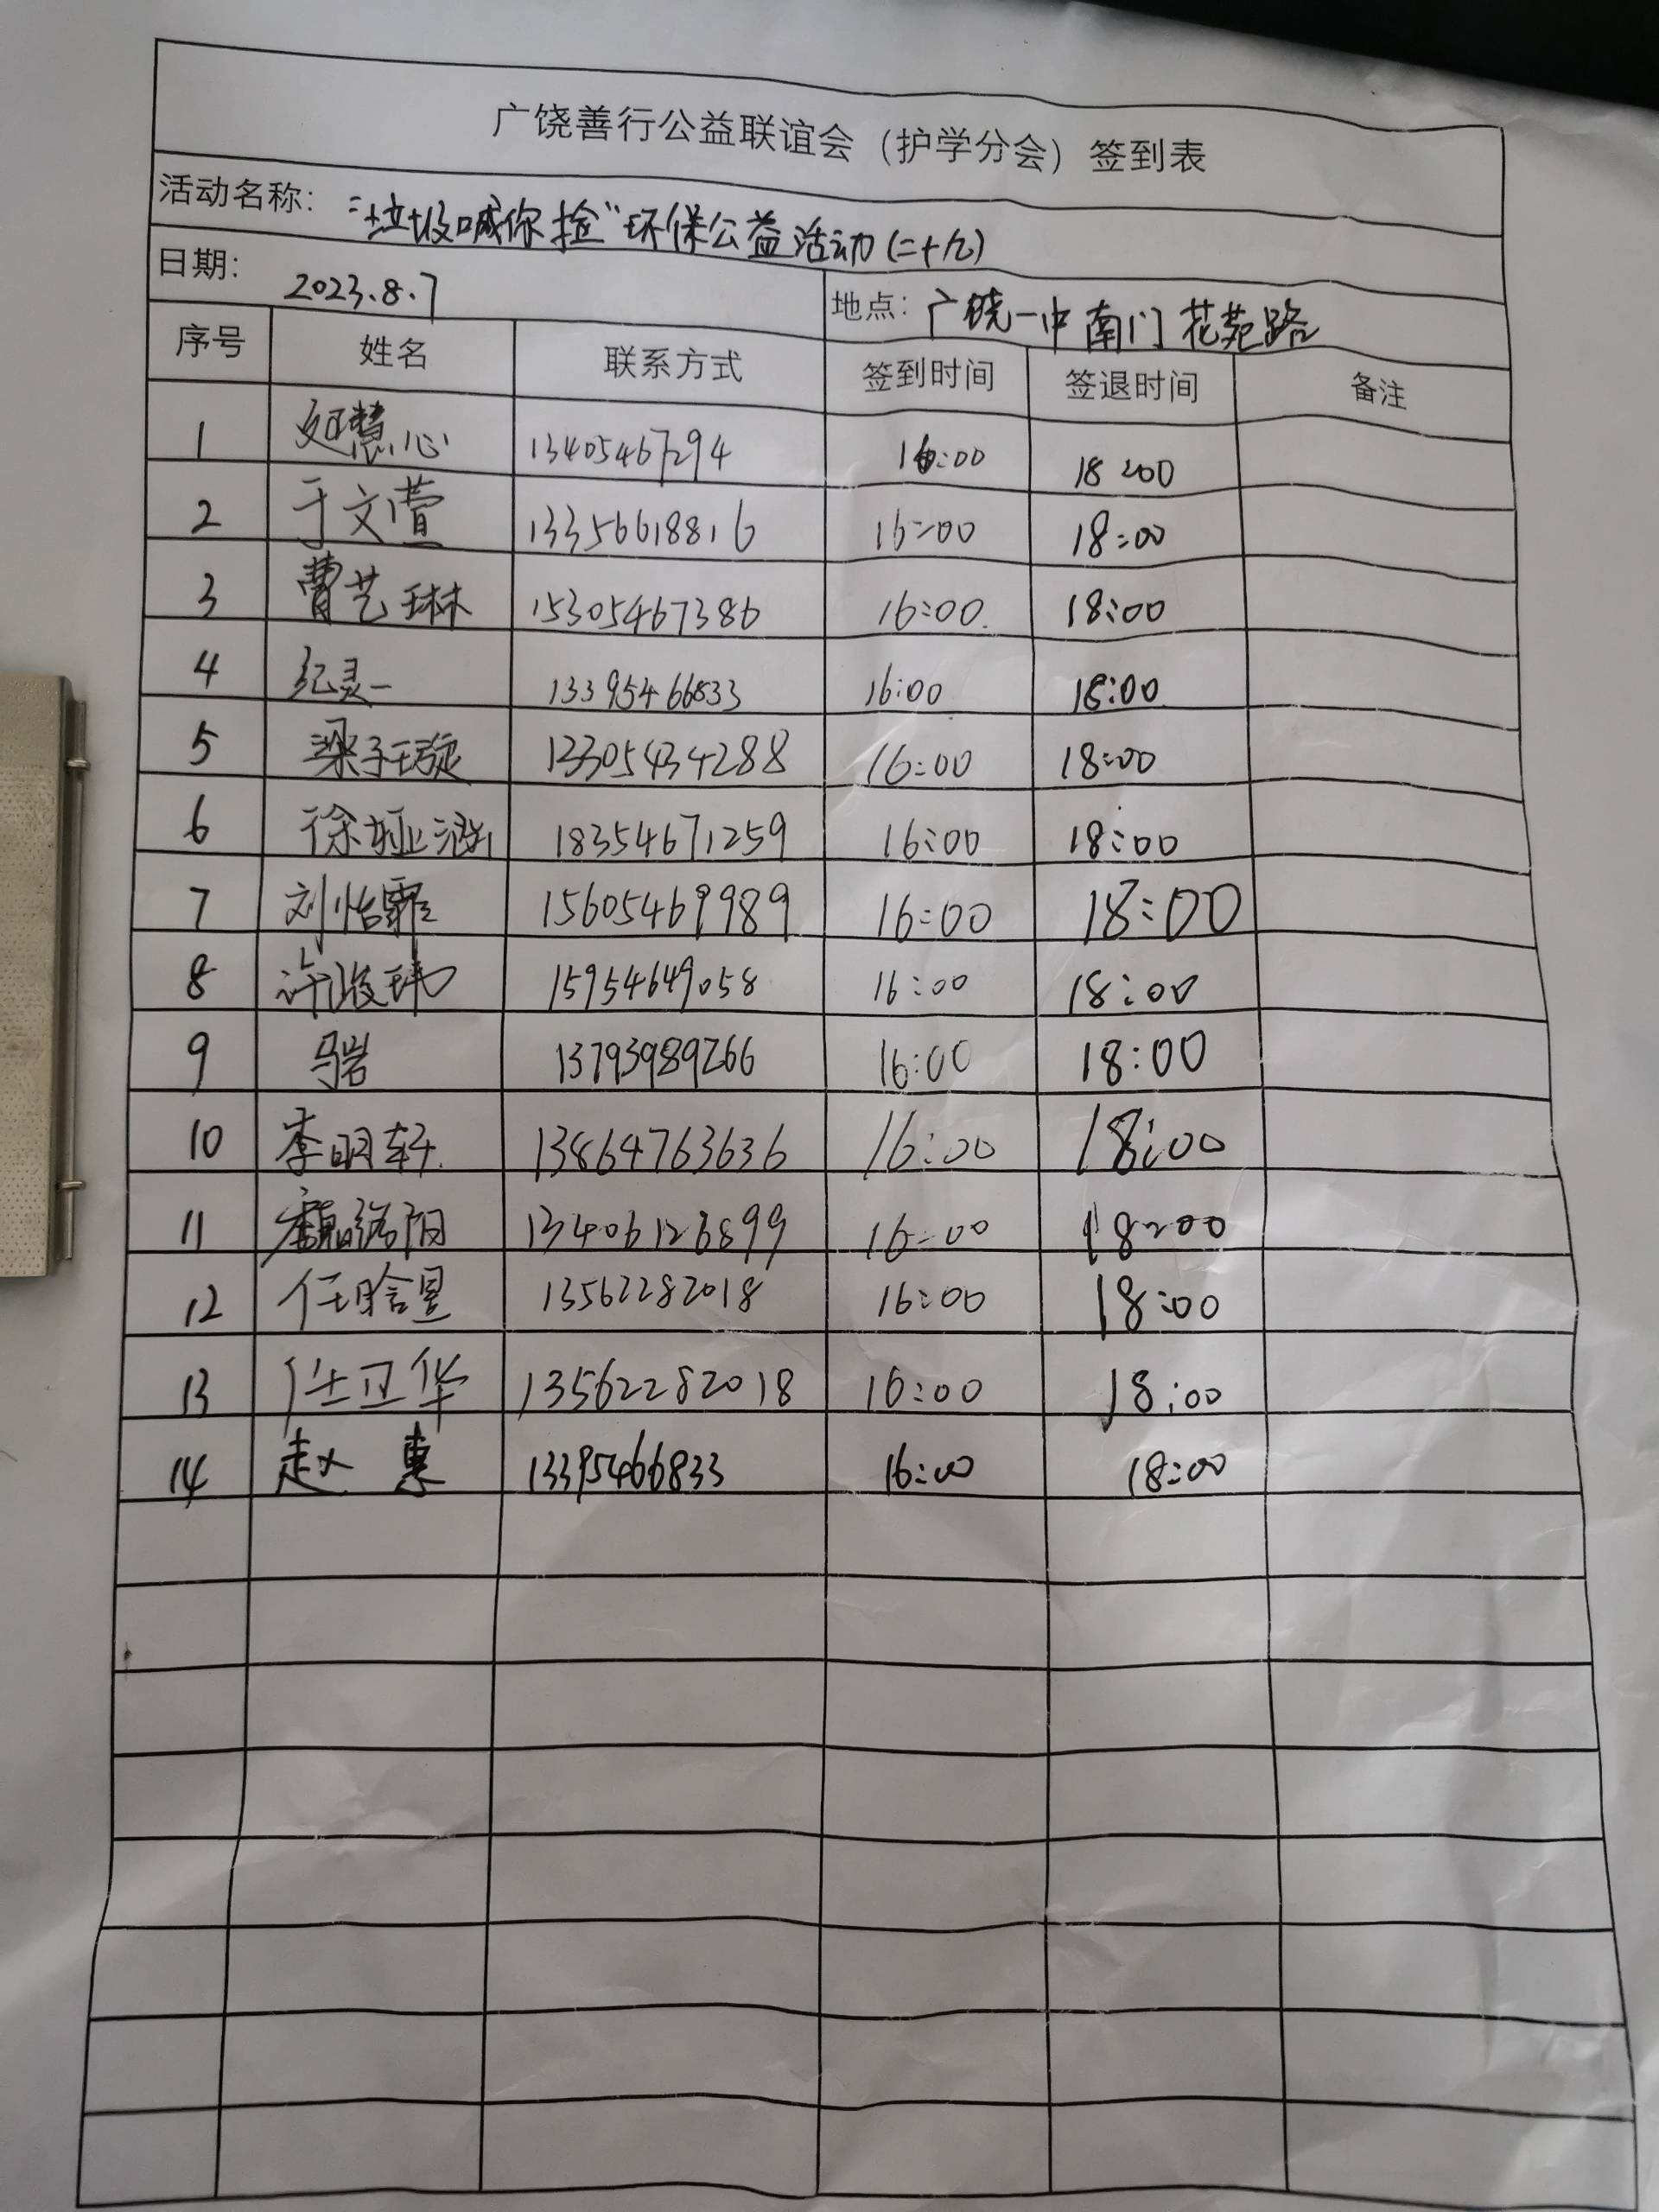 广饶善行公益联谊会（护学分会）签到表
活动名称： “垃圾喊你捡”环保公益活动(二十九)
日期： 2023.8.7 地点： 广饶一中南门花苑路
序号 姓名 联系方式 签到时间 签退时间 备注
1 慧心 13405467294 16:00 18:00
2 于文萱 13356618816 16:00 18:00
3 曹艺琳 15305467386 16:00 18:00
4 纪灵一 13395466833 16:00 18:00
5 梁子璇 13305434288 16:00 18:00
6 徐娅涵 18354671259 16:00 18:00
7 刘怡霏 15605469989 16:00 18:00
8 许峻玮 15954649058 16:00 18:00
9 马岩 13793989266 16:00 18:00
10 李明轩 13864763636 16:00 18:00
11 阳 13406126899 16:00 18:00
12 任晗昱 13562282018 16:00 18:00
13 任卫华 13562282018 16:00 18:00
14 赵惠 13395466833 16:00 18:00